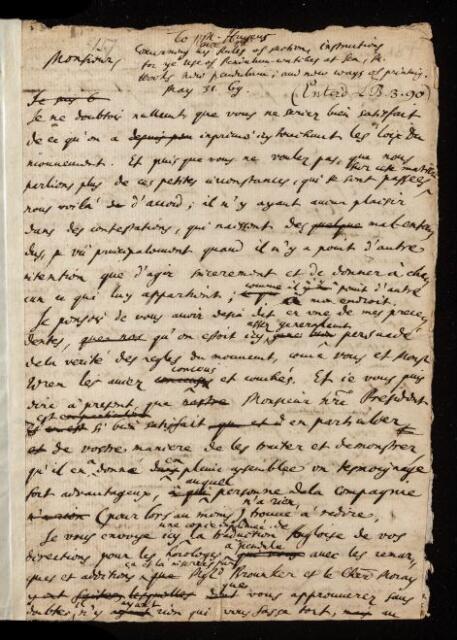 To Mr. Hugens
Concerning his Rules of motion, instructions
for ye use of Pendulum-watches at sea;
Clocks new pendulum; and new ways of printing.
Monsieur
May 31. 69.
(Enter'd L.B. 3. 90)
Je ne doubtois nullement que vous ne seriez bien satisfait
de ce qu'on a imprimé icy touchant les loix du
mouvement. Et puisque vous ne voulez pas, que nous
parlions plus de ces petites circonstances, qui se sont passées
sur cete matiere,
nous voilà d'accord; il n'y ayant aucun plaisir
dans des contestations, qui naissent des malenten
dus, principalement quand il n'y a point d'autre
intention que d'agir sincerement et de donner à cha
cun ce qui luy appartient; comme il n'y a point d'autre
à mon endroit.
Je pensois de vous avoir desia dit en une de mes prece
dentes, qu'on estoit icy assez generalement persuadé
de la verité des regles du mouvement, comme vous et Monsr
Wren les aviez conceues et couchés. Et ie vous puis
dire à present, que Monsieur nre President
est si bien satisfait et en particulier
de vostre maniere de les traiter et demonstrer
qu'il en a donné en pleine assemblee un tesmoignage
fort advantageux, auquel personne de la compagnie
n'a rien (pour lors au moins) trouvé à redire.
Je vous envoye icy une copie de
la traduction Angloise de vos
directions pour les horologes à pendule avec les remar
ques et additions que Mylord Brounker et le Chevr Moray
y ont que vous approuverez sans
doubte, n'y ayant rien qui vous fasse tort, un